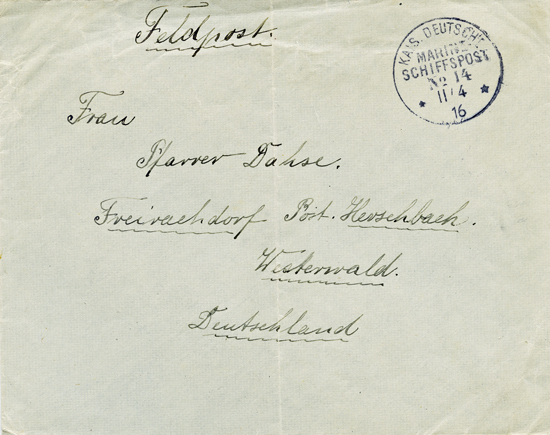 Feldpost.
KAIS. DEUTSCHE
MARINE-
SCHIFFSPOST
No 14
11/4
16
Frau
Pfarrer Dahse.
Freirachdorf Post. Herschbach.
Westerwald.
Deutschland